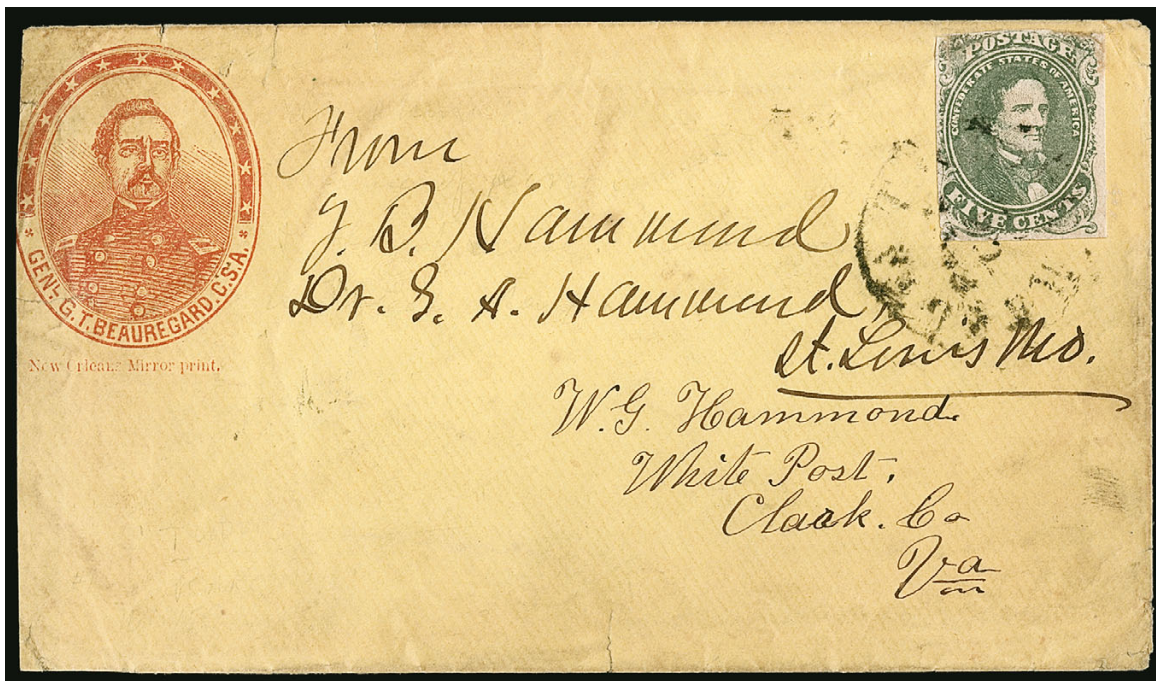 GENL. G. T. BEAUREGARD. C.S.A.
New Orleans Mirror print.
POSTAGE
CONFEDERATE STATES OF AMERICA
FIVE CENTS
From
J. B. Hammond
Dr. S. A. Hammond
St. Louis Mo.
W. G. Hammond
White Post.
Claak. Co
Va